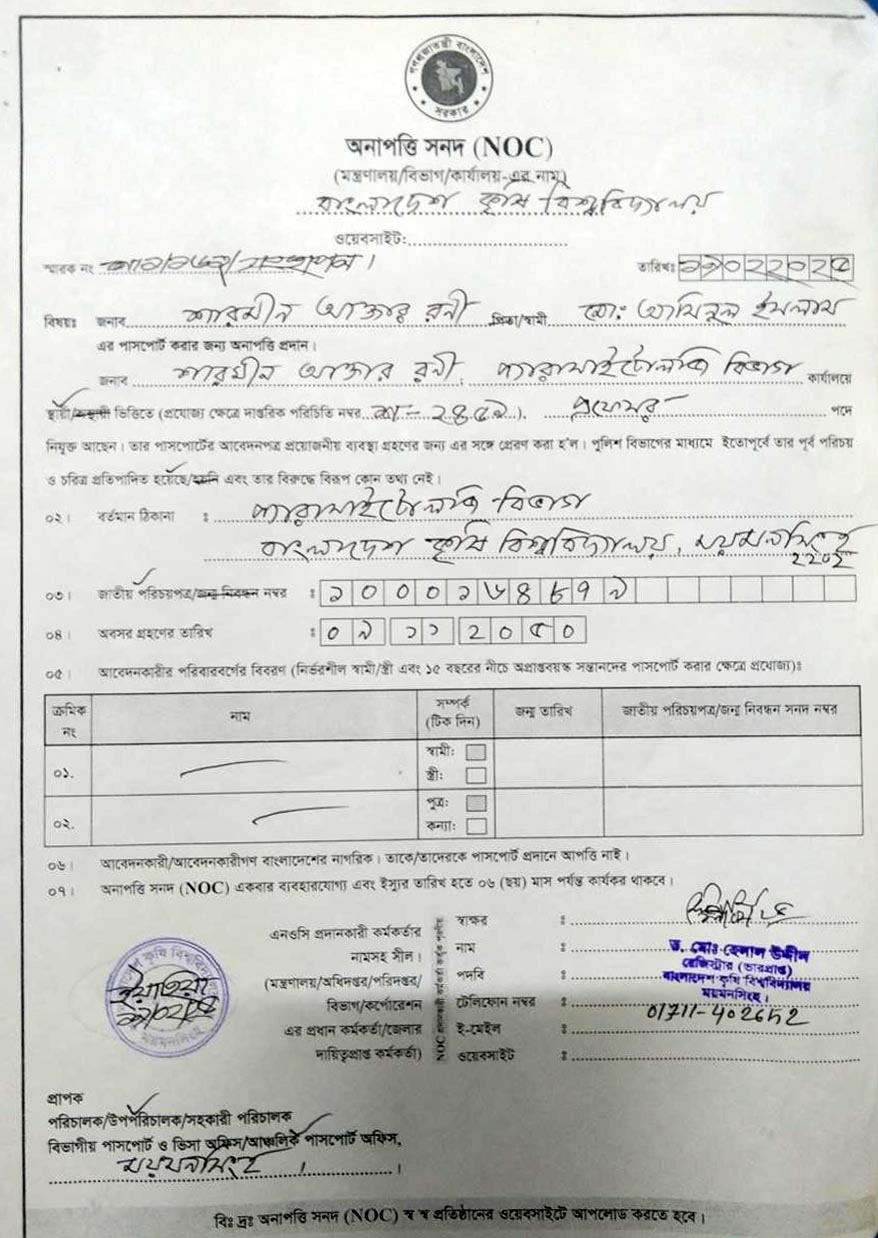 গণপ্রজাতন্ত্রী বাংলাদেশ
সরকার
অনাপত্তি সনদ (NOC)
(মন্ত্রণালয়/বিভাগ/কার্যালয়-এর নাম)
বাংলাদেশ কৃষি বিশ্ববিদ্যালয়
ওয়েবসাইট:
স্মারক নং /সংস্থাপন।
তারিখঃ
বিষয়ঃ জনাব শারমীন আক্তার রনী পিতা/স্বামী মো: আমিনুল ইসলাম
এর পাসপোর্ট করার জন্য অনাপত্তি প্রদান।
জনাব শারমীন আক্তার রনী, প্যারাসাইটোলজি বিভাগ কার্যালয়ে
স্থায়ী/অস্থায়ী ভিত্তিতে (প্রযোজ্য ক্ষেত্রে দাপ্তরিক পরিচিতি নম্বর ). প্রফেসর পদে
নিযুক্ত আছেন। তার পাসপোর্টের আবেদনপত্র প্রয়োজনীয় ব্যবস্থা গ্রহণের জন্য এর সঙ্গে প্রেরণ করা হ'ল। পুলিশ বিভাগের মাধ্যমে ইতোপূর্বে তার পূর্ব পরিচয়
ও চরিত্র প্রতিপাদিত হয়েছে/হয়নি এবং তার বিরুদ্ধে বিরূপ কোন তথ্য নেই।
০২। বর্তমান ঠিকানা : প্যারাসাইটোলজি বিভাগ
বাংলাদেশ কৃষি বিশ্ববিদ্যালয়, ময়মনসিংহ
২২০২
০৩। জাতীয় পরিচয়পত্র/জন্ম নিবন্ধন নম্বর :
০৪। অবসর গ্রহণের তারিখ : ০৯ ১১ ২০৫০
০৫। আবেদনকারীর পরিবারবর্গের বিবরণ (নির্ভরশীল স্বামী/স্ত্রী এবং ১৫ বছরের নীচে অপ্রাপ্তবয়স্ক সন্তানদের পাসপোর্ট করার ক্ষেত্রে প্রযোজ্য)ঃ
ক্রমিক নং নাম সম্পর্ক (টিক দিন) জন্ম তারিখ জাতীয় পরিচয়পত্র/জন্ম নিবন্ধন সনদ নম্বর
০১. স্বামী:
স্ত্রী:
০২. পুত্র:
কন্যা:
০৬। আবেদনকারী/আবেদনকারীগণ বাংলাদেশের নাগরিক। তাকে/তাদেরকে পাসপোর্ট প্রদানে আপত্তি নাই।
০৭। অনাপত্তি সনদ (NOC) একবার ব্যবহারযোগ্য এবং ইস্যুর তারিখ হতে ০৬ (ছয়) মাস পর্যন্ত কার্যকর থাকবে।
এনওসি প্রদানকারী কর্মকর্তার
নামসহ সীল।
(মন্ত্রণালয়/অধিদপ্তর/পরিদপ্তর/
বিভাগ/কর্পোরেশন
এর প্রধান কর্মকর্তা/জেলার
দায়িত্বপ্রাপ্ত কর্মকর্তা)
স্বাক্ষর :
নাম : ড. মোঃ হেলাল উদ্দীন
রেজিস্ট্রার (ভারপ্রাপ্ত)
পদবি : বাংলাদেশ কৃষি বিশ্ববিদ্যালয়
ময়মনসিংহ।
টেলিফোন নম্বর : 01711-402652
ই-মেইল :
ওয়েবসাইট :
প্রাপক
পরিচালক/উপপরিচালক/সহকারী পরিচালক
বিভাগীয় পাসপোর্ট ও ভিসা অফিস/আঞ্চলিক পাসপোর্ট অফিস,
ময়মনসিংহ।
বিঃ দ্রঃ অনাপত্তি সনদ (NOC) স্ব স্ব প্রতিষ্ঠানের ওয়েবসাইটে আপলোড করতে হবে।